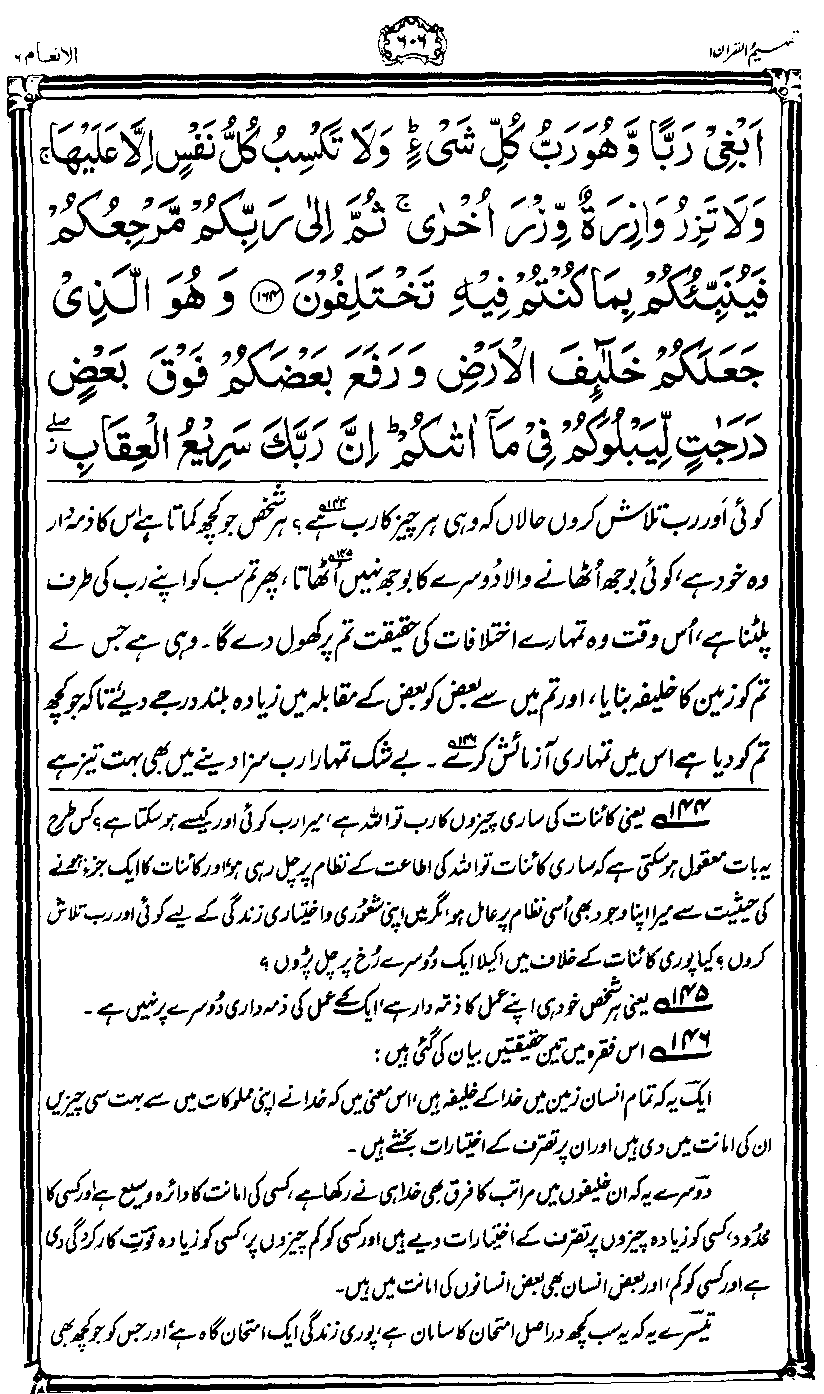 تفہیم القرآن ۱
۶۰۶
الانعام ۶
اَبْغِیْ رَبًّا وَّ هُوَ رَبُّ كُلِّ شَیْءٍ ؕ وَ لَا تَكْسِبُ كُلُّ نَفْسٍ اِلَّا عَلَیْهَا ۚ
وَ لَا تَزِرُ وَازِرَةٌ وِّزْرَ اُخْرٰی ۚ ثُمَّ اِلٰی رَبِّكُمْ مَّرْجِعُكُمْ
فَیُنَبِّئُكُمْ بِمَا كُنْتُمْ فِیْهِ تَخْتَلِفُوْنَ ﴿۱۶۴﴾ وَ هُوَ الَّذِیْ
جَعَلَكُمْ خَلٰٓئِفَ الْاَرْضِ وَ رَفَعَ بَعْضَكُمْ فَوْقَ بَعْضٍ
دَرَجٰتٍ لِّیَبْلُوَكُمْ فِیْ مَاۤ اٰتٰىكُمْ ؕ اِنَّ رَبَّكَ سَرِیْعُ الْعِقَابِ ۖ
کوئی اَور رب تلاش کروں حالاں کہ وہی ہر چیز کا رب ہے۱۴۴؟ ہر شخص جو کچھ کماتا ہے اس کا ذمہ دار
وہ خود ہے، کوئی بوجھ اُٹھانے والا دُوسرے کا بوجھ نہیں اُٹھاتا۱۴۵، پھر تم سب کو اپنے رب کی طرف
پلٹنا ہے، اُس وقت وہ تمہارے اختلافات کی حقیقت تم پر کھول دے گا۔ وہی ہے جس نے
تم کو زمین کا خلیفہ بنایا، اور تم میں سے بعض کو بعض کے مقابلہ میں زیادہ بلند درجے دیئے تاکہ جو کچھ
تم کو دیا ہے اس میں تمہاری آزمائش کرے۱۴۶۔ بے شک تمہارا رب سزا دینے میں بھی بہت تیز ہے
۱۴۴ یعنی کائنات کی ساری چیزوں کا رب تو اللہ ہے، میرا رب کوئی اور کیسے ہو سکتا ہے؟ کس طرح
یہ بات معقول ہو سکتی ہے کہ ساری کائنات تو اللہ کی اطاعت کے نظام پر چل رہی ہو، اور کائنات کا ایک جزء ہونے
کی حیثیت سے میرا اپنا وجود بھی اُسی نظام پر عامل ہو، مگر میں اپنی شعُوری و اختیاری زندگی کے لیے کوئی اور رب تلاش
کروں؟ کیا پوری کائنات کے خلاف میں اکیلا ایک دُوسرے رُخ پر چل پڑوں؟
۱۴۵ یعنی ہر شخص خود ہی اپنے عمل کا ذمّہ دار ہے، ایک کے عمل کی ذمہ داری دُوسرے پر نہیں ہے۔
۱۴۶ اس فقرہ میں تین حقیقتیں بیان کی گئی ہیں:
ایک یہ کہ تمام انسان زمین میں خدا کے خلیفہ ہیں، اس معنی میں کہ خدا نے اپنی مملوکات میں سے بہت سی چیزیں
ان کی امانت میں دی ہیں اور ان پر تصرّف کے اختیارات بخشے ہیں۔
دوسرے یہ کہ ان خلیفوں میں مراتب کا فرق بھی خدا ہی نے رکھا ہے، کسی کی امانت کا دائرہ وسیع ہے اور کسی کا
محدُود، کسی کو زیادہ چیزوں پر تصرّف کے اختیارات دیے ہیں اور کسی کو کم چیزوں پر، کسی کو زیادہ قوّتِ کارکردگی دی
ہے اور کسی کو کم، اور بعض انسان بھی بعض انسانوں کی امانت میں ہیں۔
تیسرے یہ کہ یہ سب کچھ دراصل امتحان کا سامان ہے، پوری زندگی ایک امتحان گاہ ہے، اور جس کو جو کچھ بھی